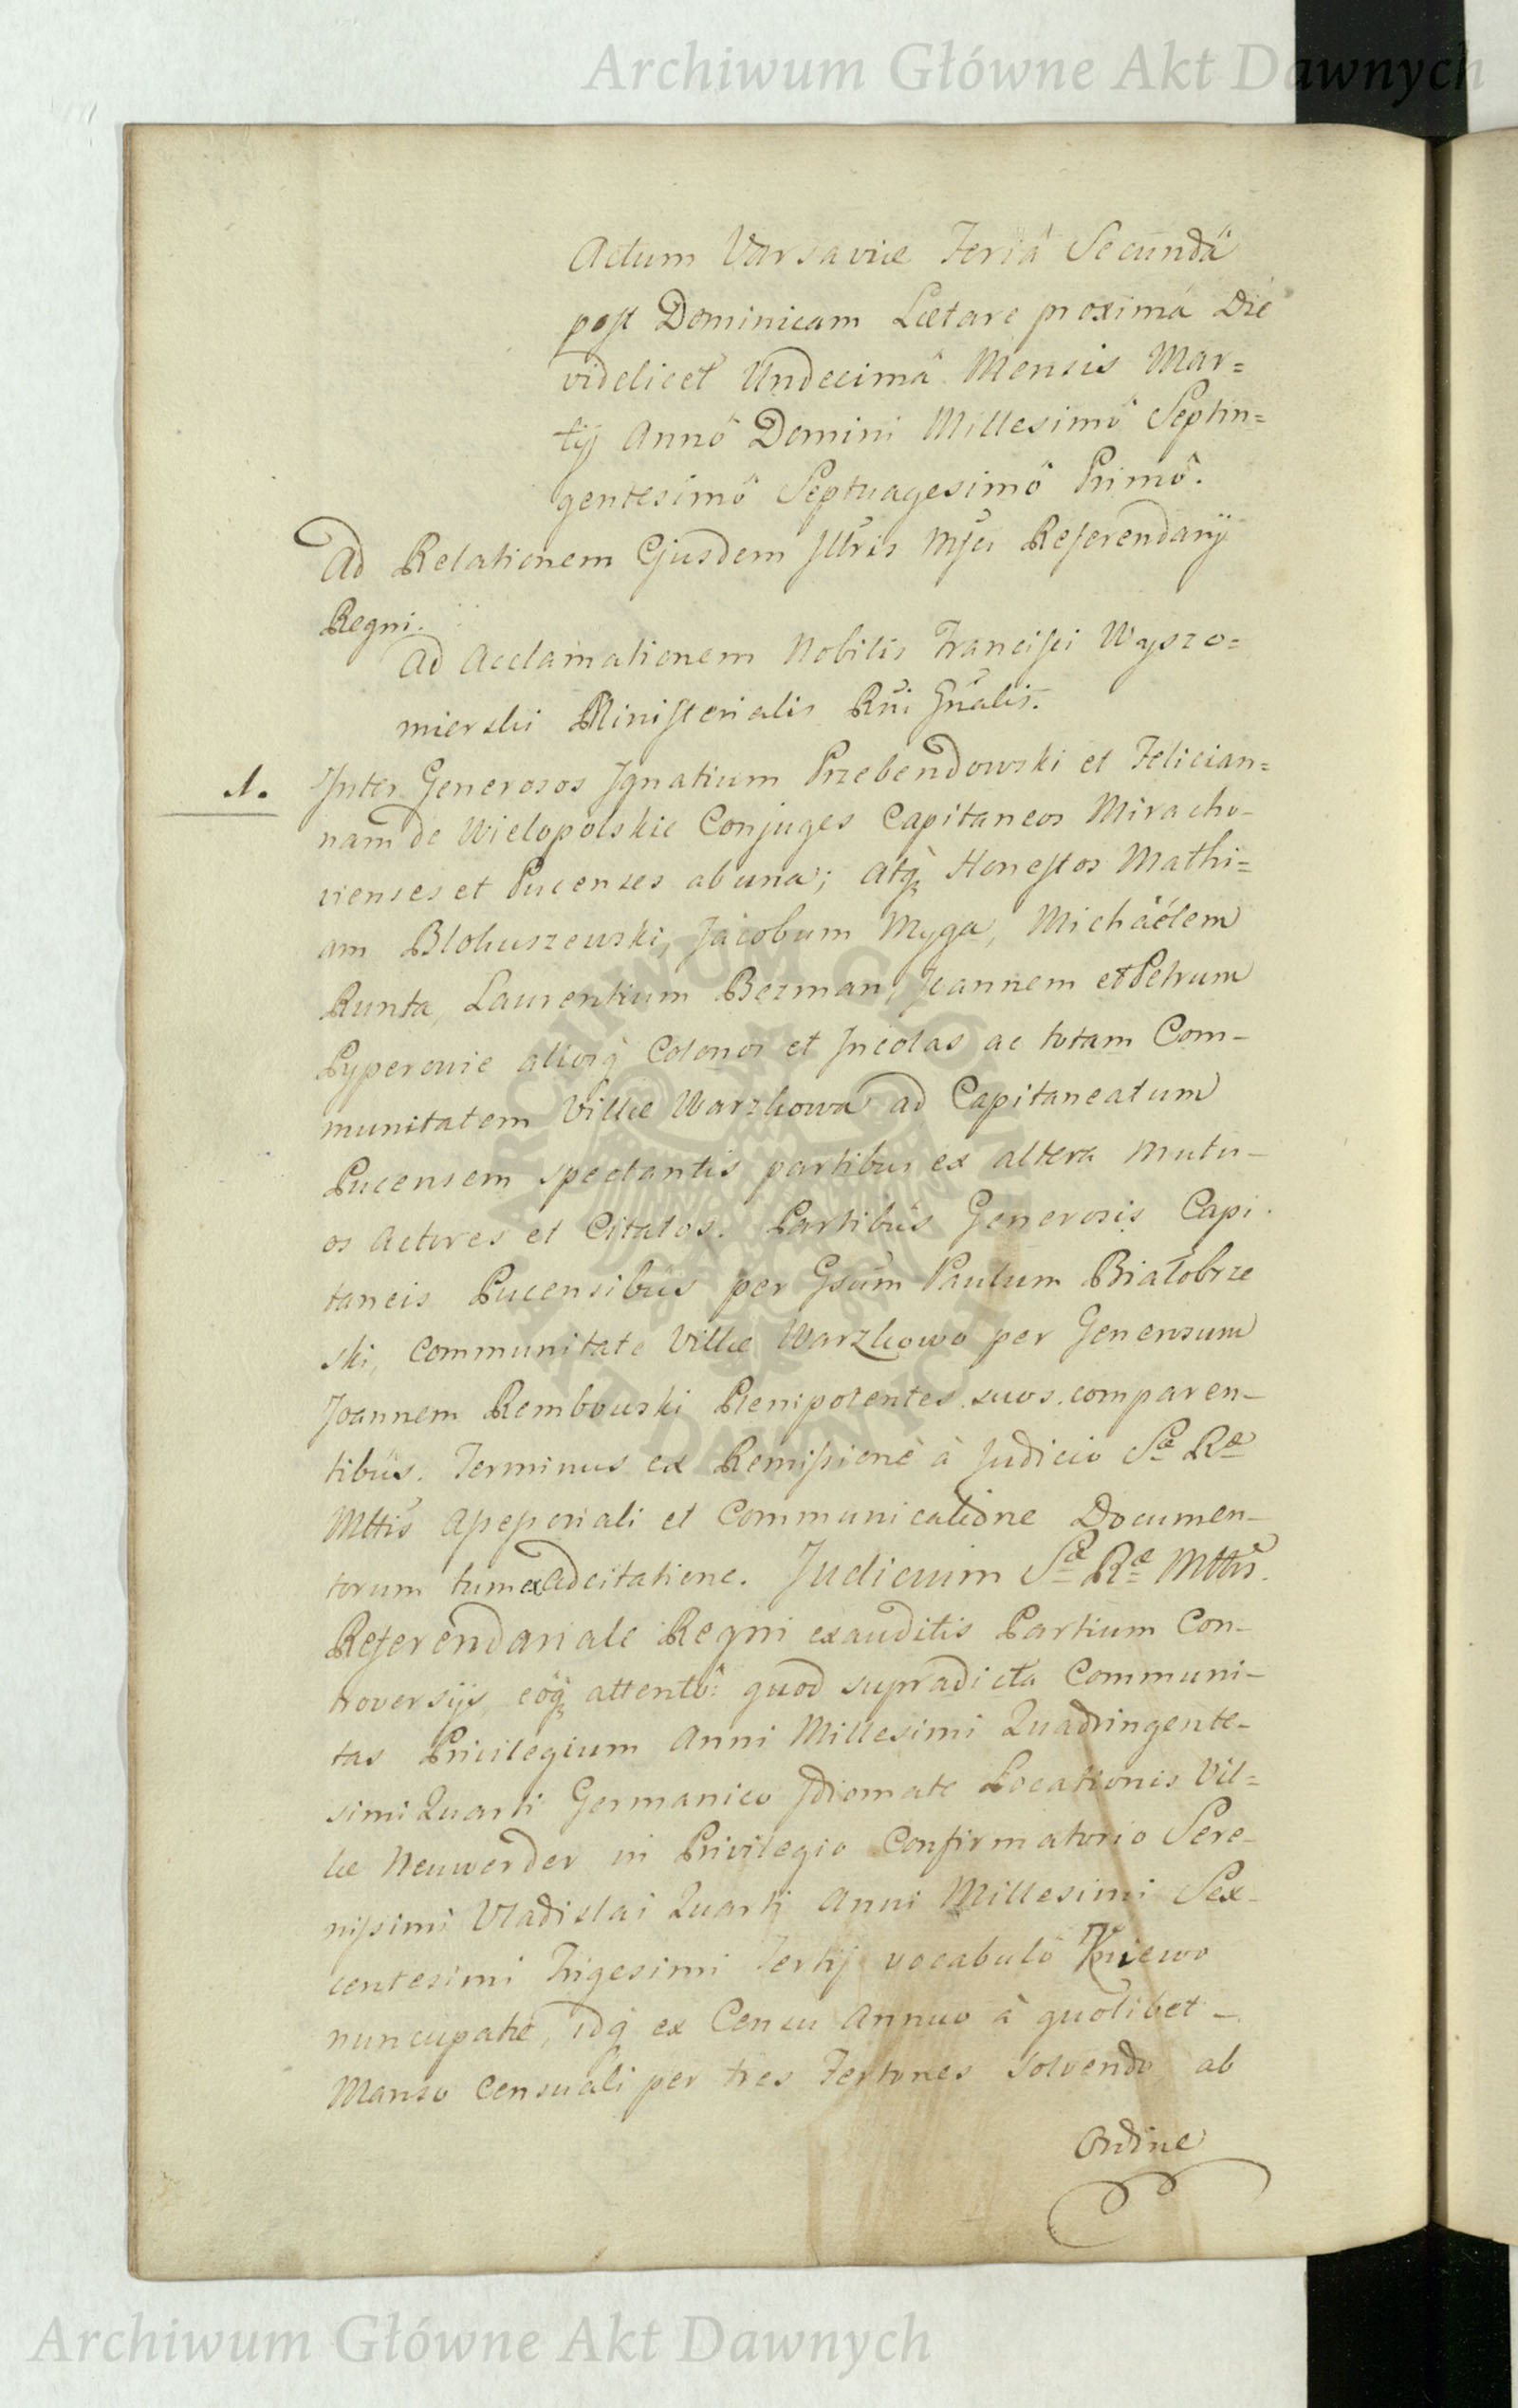 Archiwum Główne Akt Dawnych
Actum Varsaviæ Feriâ Secundâ
post Dominicam Lætare proximâ Die
videlicet Undecimâ Mensis Mar=
tij Annô Domini Millesimô Septin=
gentesimô Septuagesimô Primô.
Ad Relationem Ejusdem Jllris Mfci Referendarij
Regni.
Ad Acclamationem Nobilis Francisci Wyszo=
mierski Ministerialis Rni Gnalis.
1. Inter Generosos Ignatium Przebendowski et Felician=
nam de Wielopolskie Conjuges Capitaneos Miracho-
vienses et Pucenses ab una; atq Honestos Mathi=
am Blokuszewski, Jacobum Myga, Michäelem
Runta, Laurentium Bezman, Joannem et Petrum
Pyperowie aliosq Colonos et Incolas ac totam Com-
munitatem Villæ Warzkowa ad Capitaneatum
Pucensem spectantis partibus ex altera mutu-
os Actores et Citatos. Partibus Generosis Capi-
taneis Pucensibus per Gsum Paulum Białobrze
ski, Communitate Villæ Warzkowo per Generosum
Joannem Rembowski Plenipotentes suos comparen-
tibus. Terminus ex Remissione à Judicio Sæ Ræ
Mttis Assessoriali et Communicatione Documen-
torum tum ex Adcitatione. Judicium Sæ Ræ Mttis
Referendariale Regni exauditis Partium Con-
troversijs, eoq attentô: quod supradicta Communi-
tas Privilegium Anni Millesimi Quadringente-
simi Quarti Germanico Idiomate Locationis Vil=
læ Neuwerder in Privilegio Confirmatorio Sere-
nissimi Vladislai Quarti Anni Millesimi Sex-
centesimi Trigesimi Tertij vocabulô Kniewo
nuncupatæ, idq ex Censu Annuo à quolibet -
Manso Censuali per tres Fertones solvendo, ab
Ordine
ARCHIWUM GŁÓWNE
AKT DAWNYCH
Archiwum Główne Akt Dawnych